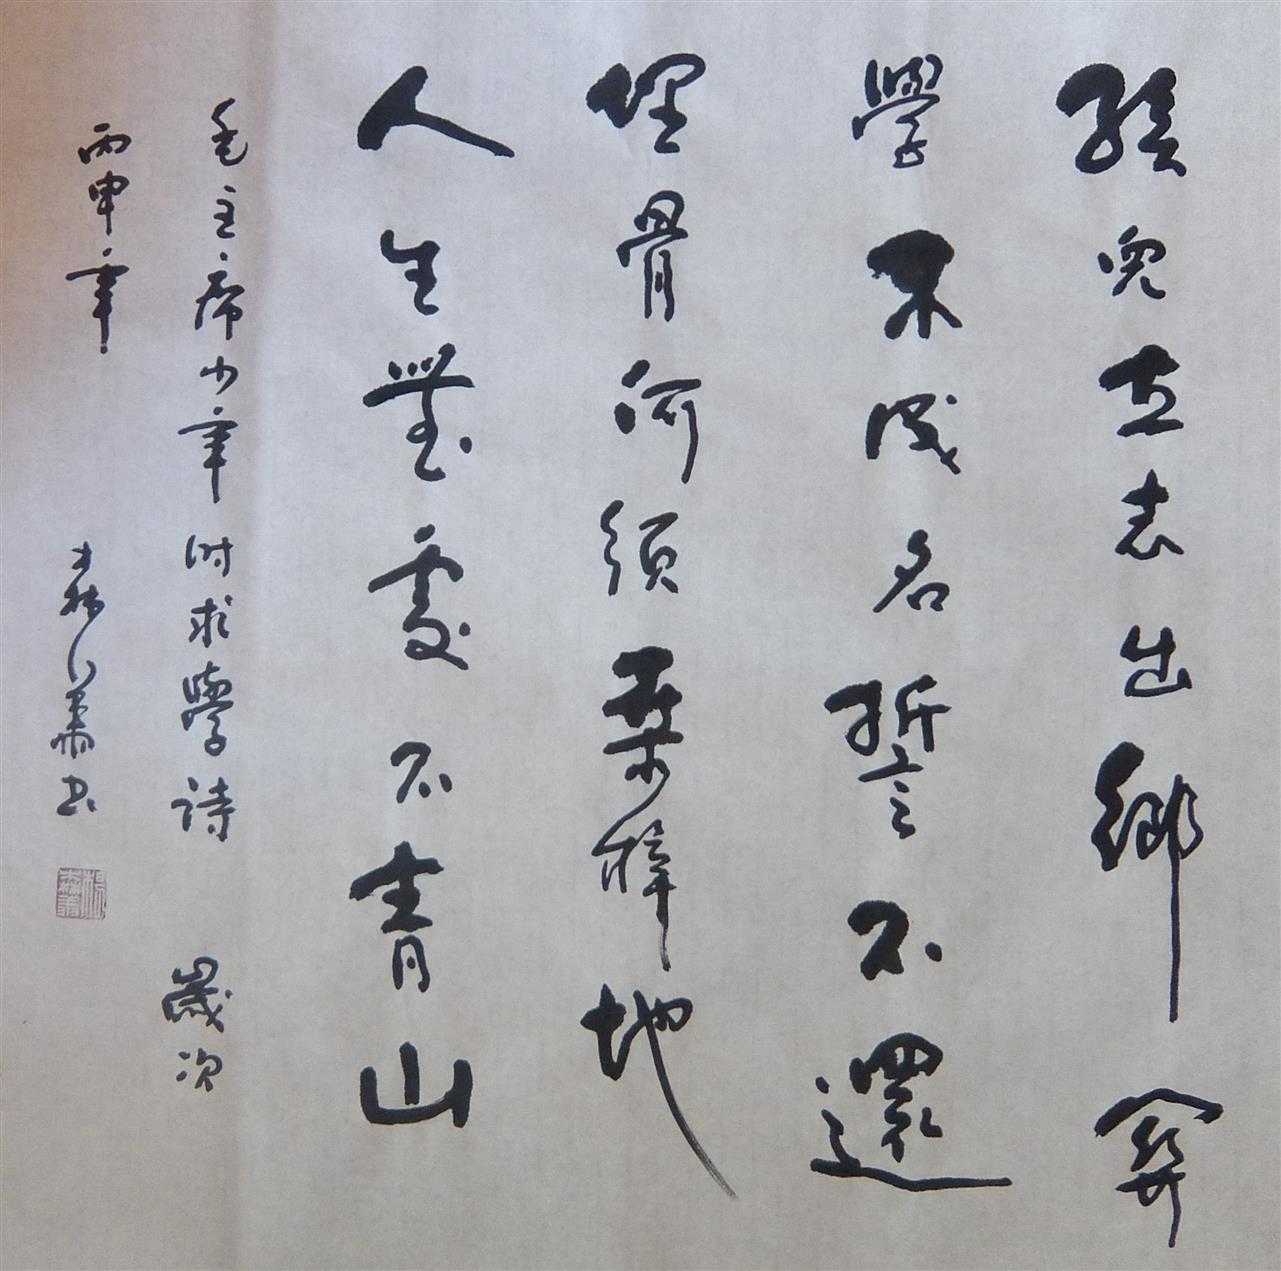 孩兒立志出鄉關
學不成名誓不還
埋骨何須桑梓地
人生無處不青山
毛主席少年時求學詩 歲次
丙申年 森 書